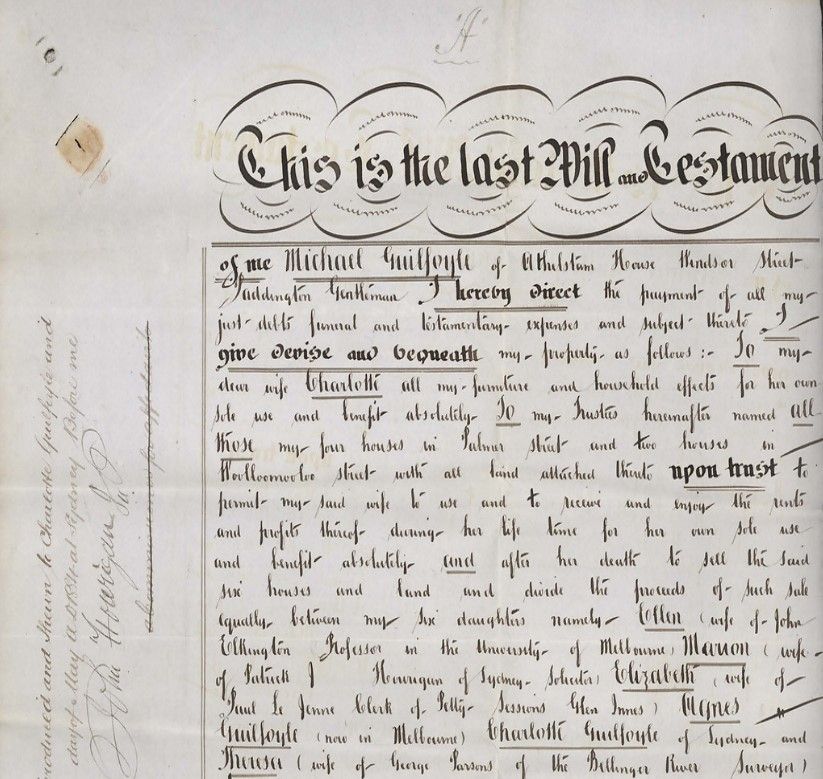 "A"
This is the last Will and Testament
of me Michael Guilfoyle of Athelstam House Windsor Street
Paddington Gentleman I hereby Direct the payment of all my
just debts funeral and testamentary expenses and subject thereto I
give Devise and bequeath my property as follows :- To my
dear wife Charlotte all my furniture and household effects for her own
sole use and benefit absolutely To my Trustees hereinafter named all
those my four houses in Palmer street and two houses in
Woolloomooloo street with all land attached thereto upon trust to
permit my said wife to use and to receive and enjoy the rents
and profits thereof during her life time for her own sole use
and benefit absolutely and after her death to sell the said
six houses and land and divide the proceeds of such sale
equally between my six daughters namely Ellen (wife of John
Elkington Professor in the University of Melbourne) Marion (wife
of Patrick J Hourigan of Sydney Solicitor) Elizabeth (wife of
Paul Le Jenne Clerk of Petty Sessions Glen Innes) Agnes
Guilfoyle (now in Melbourne) Charlotte Guilfoyle of Sydney and
Theresa (wife of George Parsons of the Bellinger River Surveyor)
roduced and shewn to Charlotte Guilfoyle and
day of May A.D. 1884 at Sydney Before me
Hourigan J.P.